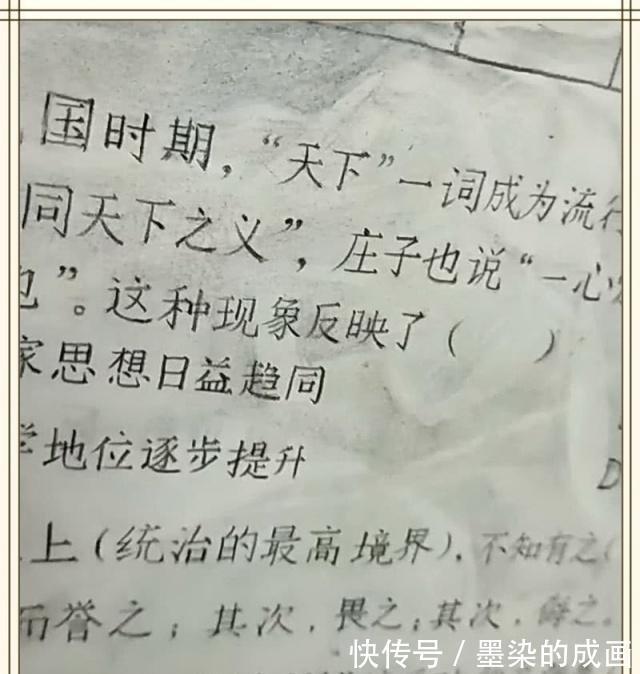 国时期，“天下”一词成为流行
同天下之义”，庄子也说“一心
也”。这种现象反映了（  ）
家思想日益趋同
学地位逐步提升
D
上（统治的最高境界），不知有之（
而誉之；其次，畏之；其次，侮之。
快传号 / 墨染的成画